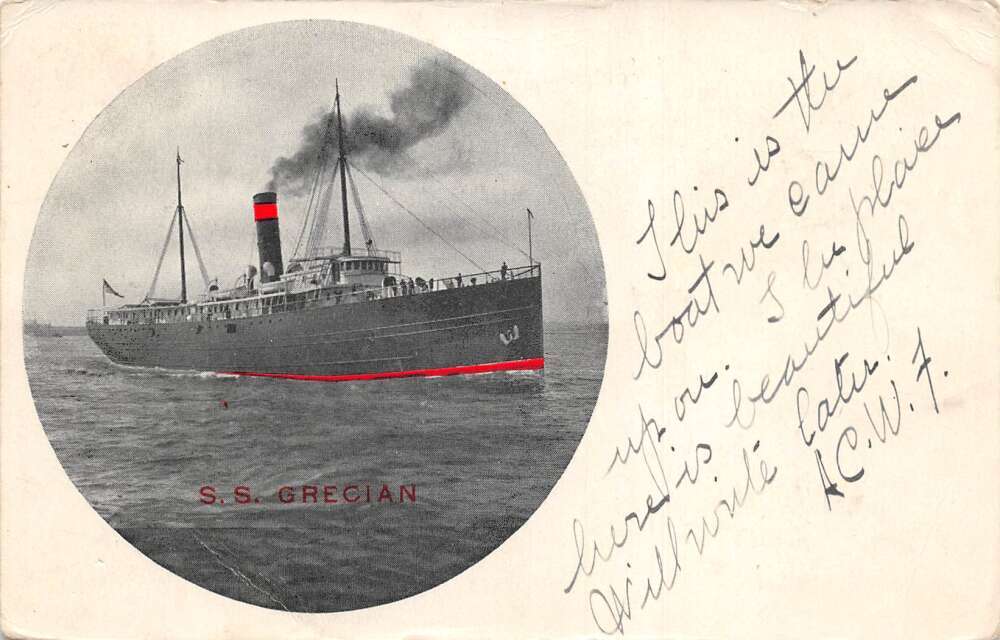 S. S. GRECIAN
This is the
boat we came
upon. The place
here is beautiful
Will write later.
A.C.W.F.